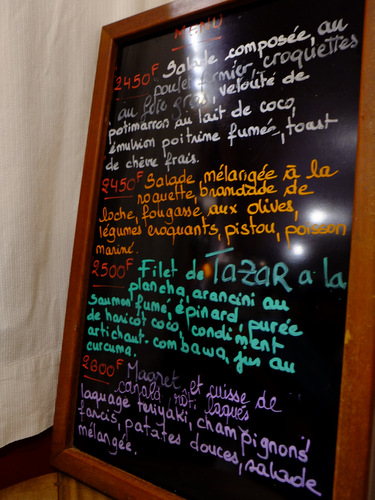 MENU
2450F Salade composée, au
poulet fermier, croquettes
au foie gras, velouté de
potimarron au lait de coco,
émulsion poitrine fumée, toast
de chèvre frais.
2450F Salade, mélangée à la
roquette, brandade de
loche, fougasse aux olives,
légumes croquants, pistou, poisson
mariné.
2500F Filet de TaZaR a la
plancha, arancini au
saumon fumé, épinard, purée
de haricot coco, condiment
artichaut-combawa, jus au
curcuma.
2800F Magret et cuisse de
canard rôti laqués
laquage teriyaki, champignons
farcis, patates douces, salade
mélangée.